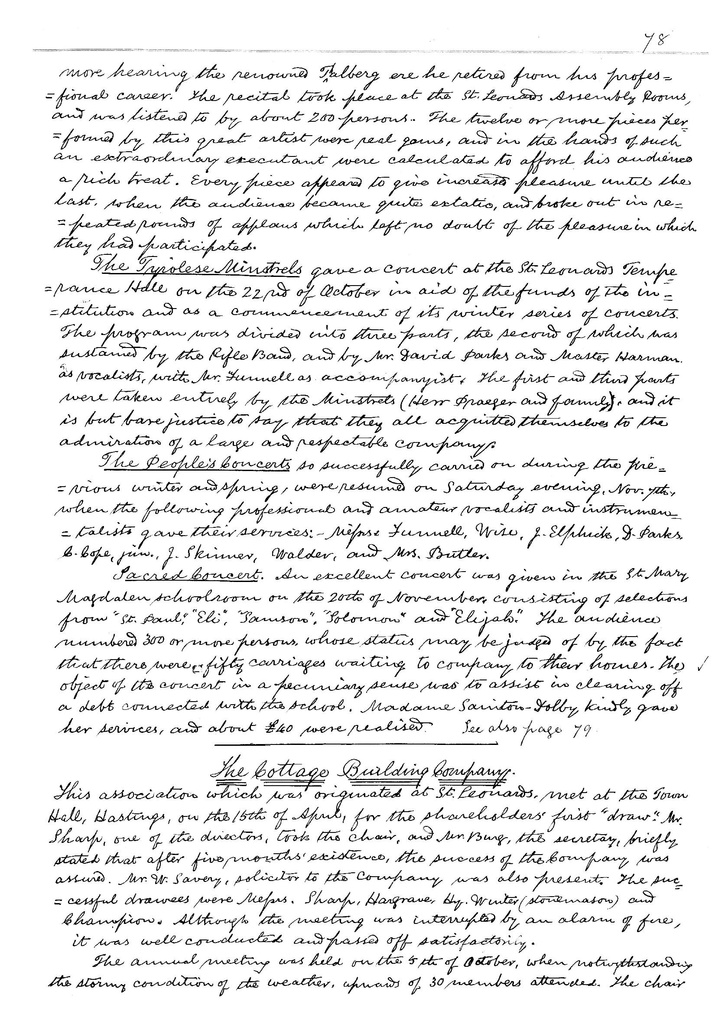 78
more hearing the renowned Thalberg ere he retired from his profes=
=sional career. The recital took place at the St. Leonards Assembly Rooms,
and was listened to by about 200 persons. The twelve or more pieces per=
=formed by this great artist were real gems, and in the hands of such
an extraordinary executant were calculated to afford his audience
a rich treat. Every piece appeared to give increased pleasure until the
last, when the audience became quite extatic, and broke out in re=
=peated rounds of applaus which left no doubt of the pleasure in which
they had participated.
The Tyrolese Minstrels gave a concert at the St. Leonards Tempe
=rance Hall on the 22nd of October in aid of the funds of the in=
=stitution and as a commencement of its winter series of concerts.
The program was divided into three parts, the second of which was
sustained by the Rifle Band, and by Mr. David Parks and Master Harman
as vocalists, with Mr. Funnell as accompanyist. The first and third parts
were taken entirely by the Minstrels (Herr Praeger and family), and it
is but bare justice to say that they all acquitted themselves to the
admiration of a large and respectable company.
The People's Concerts so successfully carried on during the pre=
=vious winter and spring, were resumed on Saturday evening, Nov. 7th,
when the following professional and amateur vocalists and instrumen=
=talists gave their services:- Messrs Funnell, Wise, J. Elphick, D. Parks
C. Cope, jun., J. Skinner, Walder, and Mrs. Butler.
Sacred Concert. An excellent concert was given in the St. Mary
Magdalen schoolroom on the 20th of November, consisting of selections
from "St. Paul," "Eli", "Samson", "Solomon" and "Elijah". The audience
numbered 300 or more persons, whose status may be judged of by the fact
that there were fifty carriages waiting to company to their homes. The
object of the concert in a pecuniary sense was to assist in clearing off
a debt connected with the school. Madame Sainton-Dolby kindly gave
her services, and about £40 were realised. See also page 79
The Cottage Building Company.
This association which was originated at St. Leonards, met at the Town
Hall, Hastings, on the 15th of April, for the shareholders' first "draw". Mr.
Sharp, one of the directors, took the chair, and Mr. Burg, the secretary, briefly
stated that after five months' existence, the success of the Company was
assured. Mr. W. Savery, solicitor to the Company was also present. The suc=
=cessful drawees were Messrs. Sharp, Hargrave, Hy. Winter (stonemason) and
Champion. Although the meeting was interrupted by an alarm of fire,
it was well conducted and passed off satisfactoriy.
The annual meeting was held on the 5th of October, when notwithstanding
the stormy condition of the weather, upwards of 30 members attended. The chair